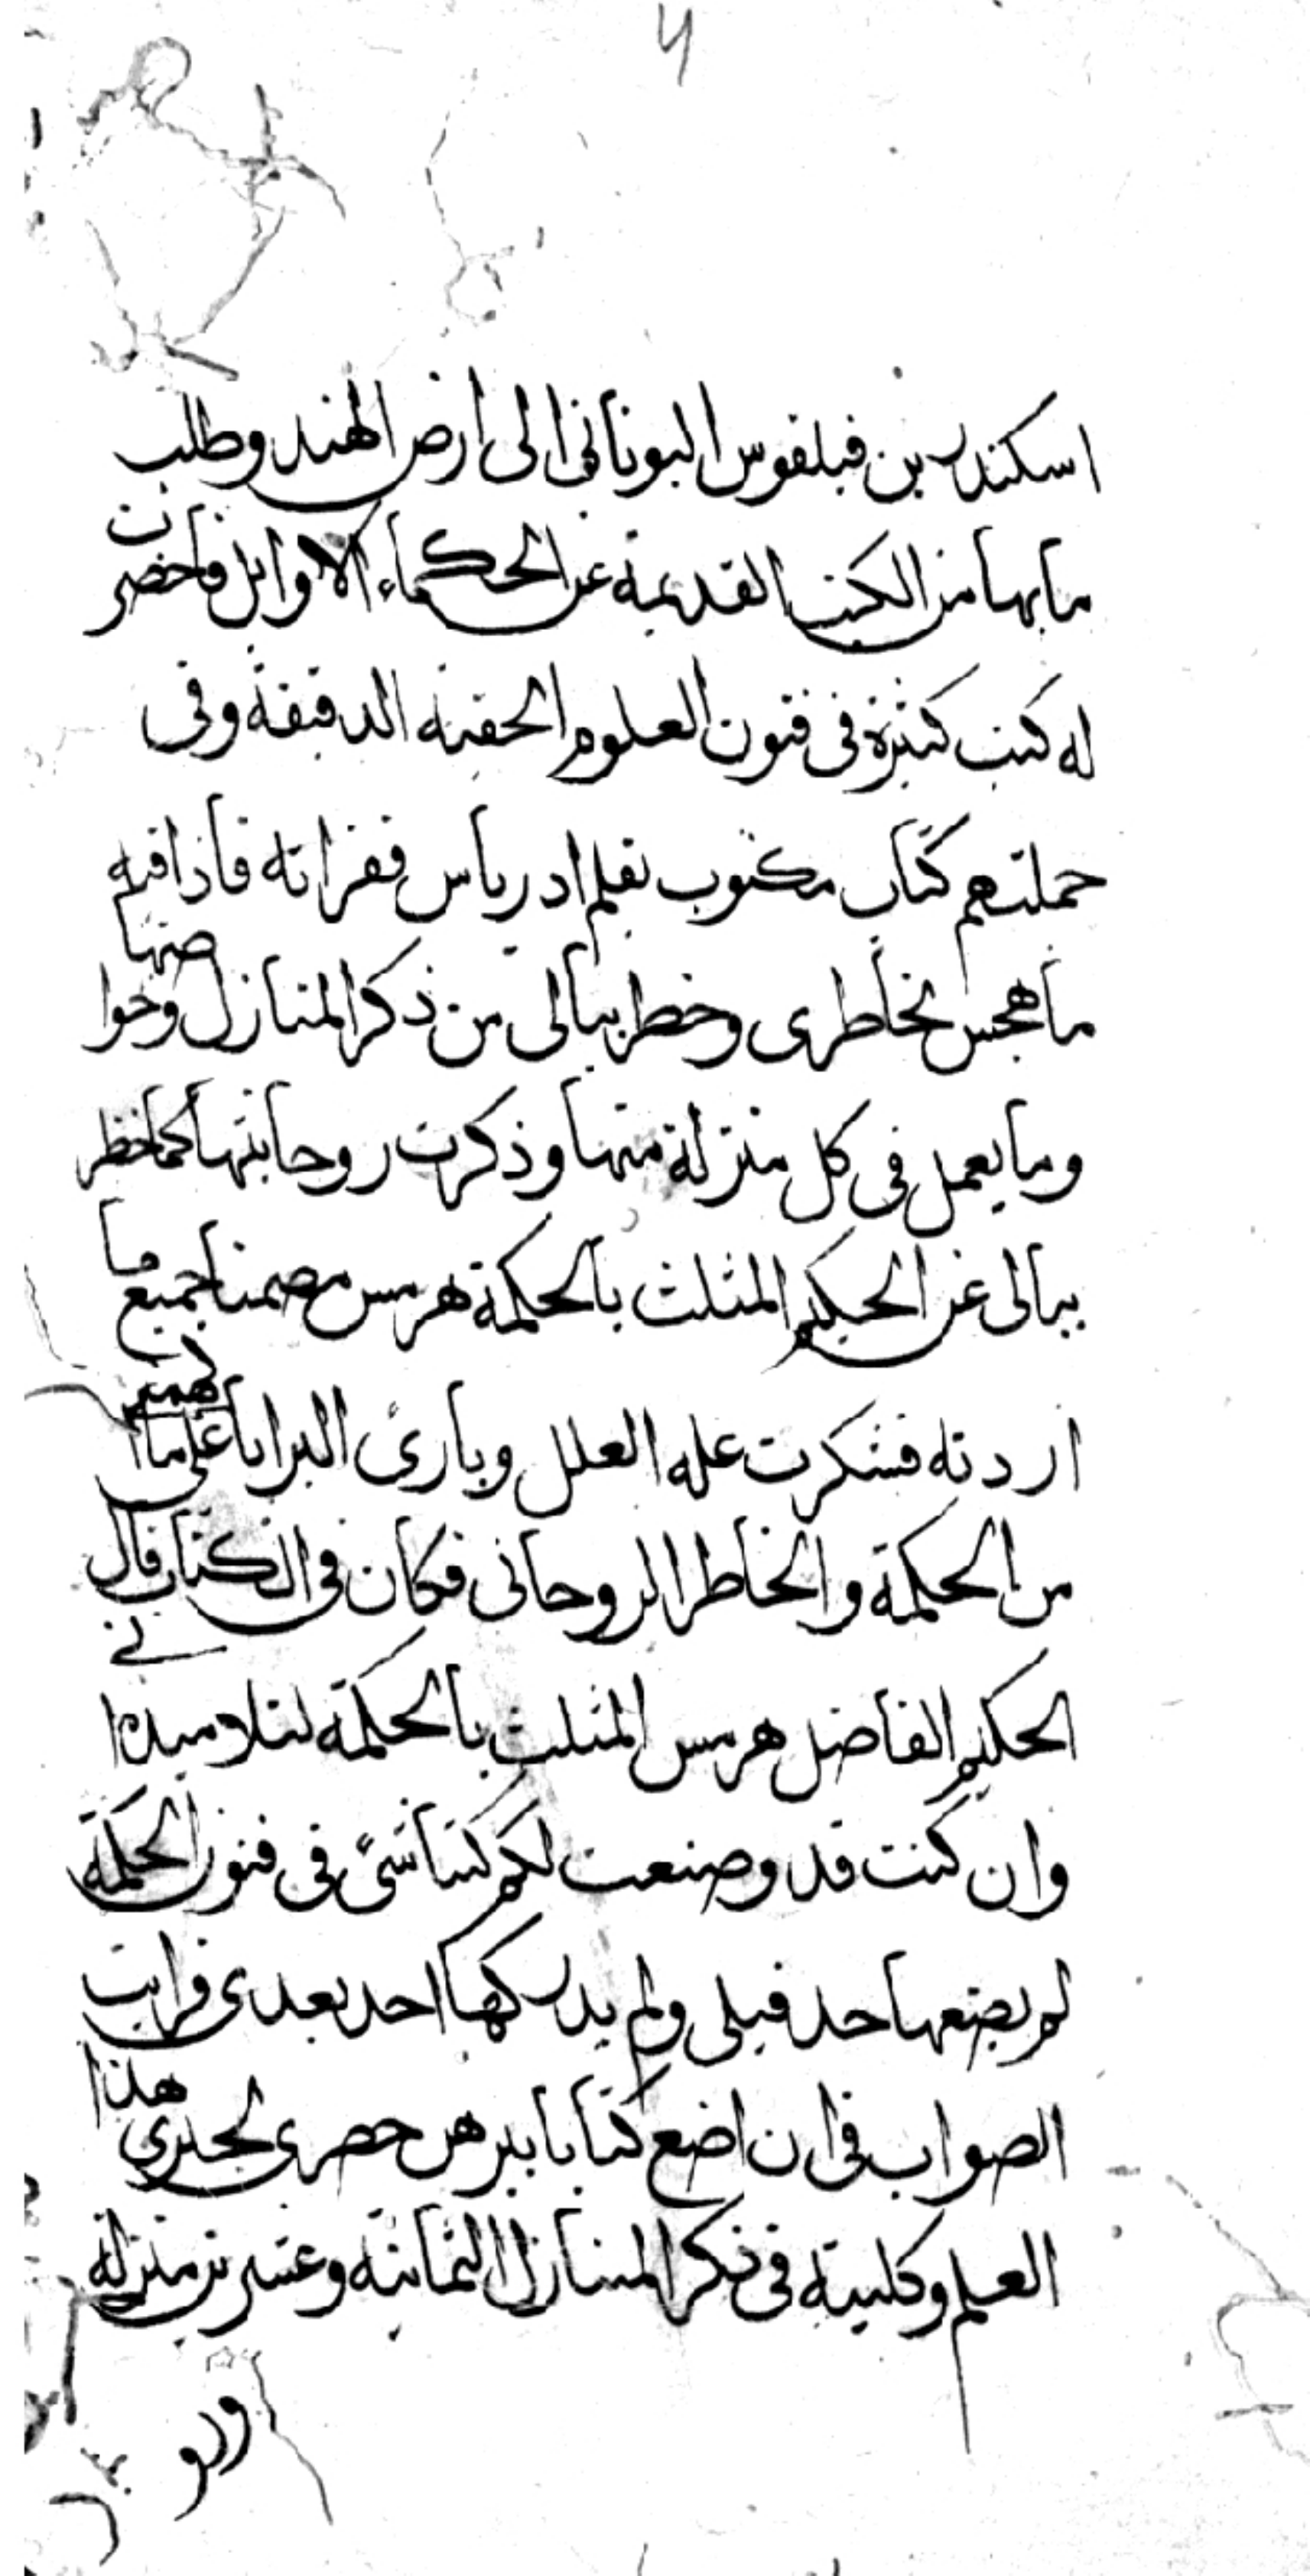 اسكندر بن فيلفوس اليوناني الى ارض الهند وطلب
ما بها من الكتب القديمة عن الحكماء الاوايل فاحضرت
له كتب كثيرة في فنون العلوم الحقية الدقيقة وفي
جملتهم كتاب مكتوب بقلم ادرياس فقراته فاذا فيه
ما هجس بخاطرى وخطر ببالى من ذكر المنازل وخواصها
وما يعمل في كل منزلة منها وذكرت روحانيتها كما خطر
ببالى عن الحكيم المثلث بالحكمة هرمس مضمنا جميع ما
اردته فشكرت علة العلل وبارئ البرايا على ما الهمني
من الحكمة والخاطر الروحاني فكان في الكتاب قال
الحكيم الفاضل هرمس المثلث بالحكمة لتلاميذه اني
وان كنت قد وضعت لكم كتبا شئ في فنون الحكمة
لم يضعها احد قبلى ولم يدركها احد بعدى فرايت
الصواب في ان اضع كتابا هذا
العلم وكليته في ذكر المنازل الثمانية وعشرين منزلة